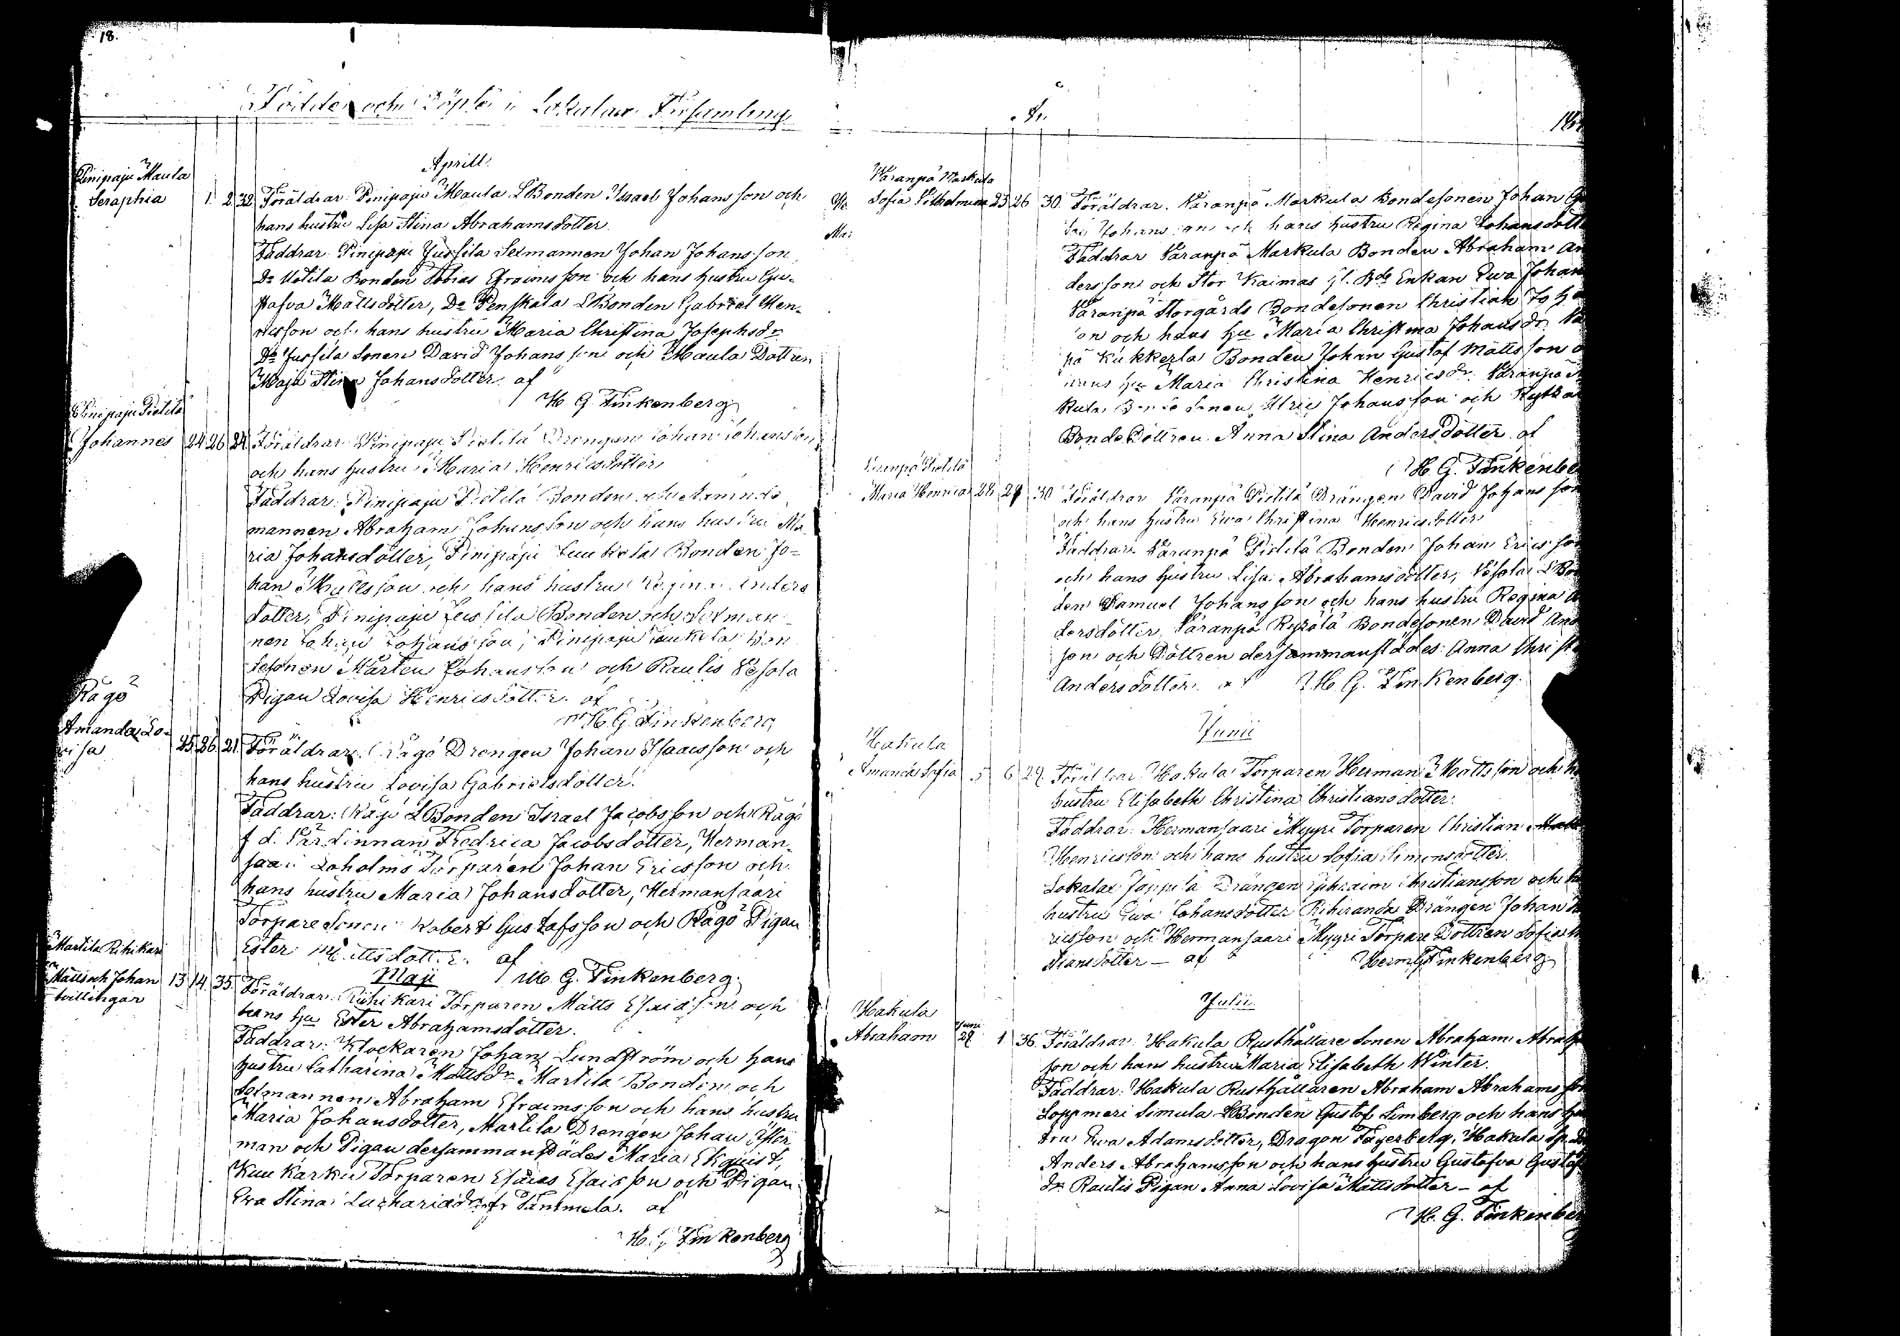 18.
Födde och Döpte i Lokalax Församling
Aprill.
Pinipaju Maula
Seraphia 1. 2 32 Föräldrar Pinipaju Maula LBonden Israel Johansson och
hans hustru Lisa Stina Abrahamsdotter.
Faddrar Pinipaju Jussila Sexmannen Johan Johansson
Do Uotila Bonden Tobias Efraimsson och hans hustru Gu-
stafva Mattsdotter, Do Penskala LBonden Gabriel Hen-
ricsson och hans hustru Maria Christina Josephsdr
Do Jussila Sonen David Johansson och Maula Dottren
Maja Stina Johansdotter. af
H G Finkenberg
Pinipaju Pietilä
Johannes 24 26 24 Föräldrar Pinipaju Pietilä Drengen Johan Johansson
och hans hustru Maria Henricsdotter
Faddrar: Pinipaju Pietilä Bonden och
mannen Abraham Johansson och hans hustru Ma-
ria Johansdotter, Pinipaju Bonden Jo-
han Mattsson och hans hustru Regina Anders
dotter, Pinipaju Jussila Bonden och Sexman-
nen Johan Johansson, Pinipaju Bon
desonen Mårten Johansson och Raulis Vesola
Pigan Lovisa Henricsdotter. af
H. G. Finkenberg
Rågö
Amanda Lo-
visa 25 26 21 Föräldrar: Rågö Drengen Johan Isaacsson och
hans hustru Lovisa Gabrielsdotter.
Faddrar: Rågö LBonden Israel Jacobsson och Rågö
f d. Värdinnan Fredrica Jacobsdotter, Herman-
saari Laholms Torparen Johan Ericsson och
hans hustru Maria Johansdotter, Hermansaari
Torpare Sonen Robert Gustafsson och Rågö Pigan
Ester Mattsdotter. af
H. G. Finkenberg
Maji
Martila Rihikari
Matts och Johan 13 14 35 Föräldrar: Riihikari Torparen Matts Esaiasson och
tvillingar hans hu Ester Abrahamsdotter.
Faddrar: Klockaren Johan Lundström och hans
hustru Catharina Mattsdr Martila Bonden och
Sexmannen Abraham Efraimsson och hans hustru
Maria Johansdotter, Martila Drengen Johan
man och Pigan dersammanstädes Maria Ekqvist,
Kuukarku Torparen Esaias Esaisson och Pigan
Eva Stina Zachariadr fr Tammela. af
H. G Finkenberg
År 18
Varanpä Markula
Sofia Vilhelmina 25 26 30 Föräldrar. Varanpä Markula Bondesonen Johan
Johansson och hans hustru Regina Johansdott
Faddrar Varanpä Markula Bonden Abraham An
dersson och Stor Kaimas fl. Bde Enkan Ewa Johan
Varanpä Storgårds Bondesonen Christian Joha
on och hans hu Maria Christina Johansdr. Va
pä Kukkerla Bonden Johan Gustaf Mattsson o
hans hu Maria Christina Henricsdr. Varanpä
kula Bonde Sonen Ulric Johansson och
Bonde Dottren Anna Stina Andersdotter. af
H. G. Finkenbe
Varanpä Pietilä
Maria Henrica 28 29 30 Föräldrar Varanpä Pietilä Drängen David Johansson
och hans hustru Ewa Christina Henricsdotter
Faddrar. Varanpä Pietilä Bonden Johan Ericsson
och hans hustru Lisa Abrahamsdotter, Vesola LBon
den Samuel Johansson och hans hustru Regina A
dersdotter. Varanpä Bondesonen David And
son och Dottren dersammanstädes Anna Christ
Andersdotter. af H. G. Finkenberg.
Junii
Hakula
Amanda Sofia 5 6 29 Föräldrar Hakula Torparen Herman Mattsson och h
hustru Elisabeth Christina Christiansdotter.
Faddrar: Hermansaari Myyri Torparen Christian
Henricsson och hans hustru Sofia Simonsdotter.
Lokalax Joppila Drängen Ephraim Christiansson och h
hustru Ewa Johansdotter Rihiranda Drängen Johan
ricsson och Hermansaari Myyri Torpare Dottren Sofia
stiansdotter – af Herm. G Finkenberg
Julii
Hakula Juni
Abraham 29 1 36 Föräldrar. Hakula Rusthållare Sonen Abraham Abrah
son och hans hustru Maria Elisabeth Winter
Faddrar: Hakula Rusthållaren Abraham Abrahamsson
Loppmeri Simula LBonden Gustaf Limberg och hans hu
tru Ewa Adamsdotter, Dragon Fagerberg, Hakula
Anders Abrahamsson och hans hustru Gustafva Gustaf
dr Raulis Pigan Anna Lovisa Mattsdotter – af
H. G. Finkenber